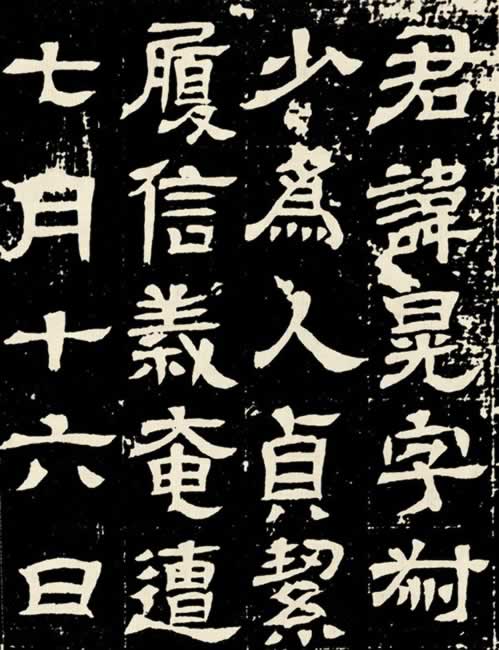 君諱晃字
少爲人貞絜
履信義奄遭
七月十六日